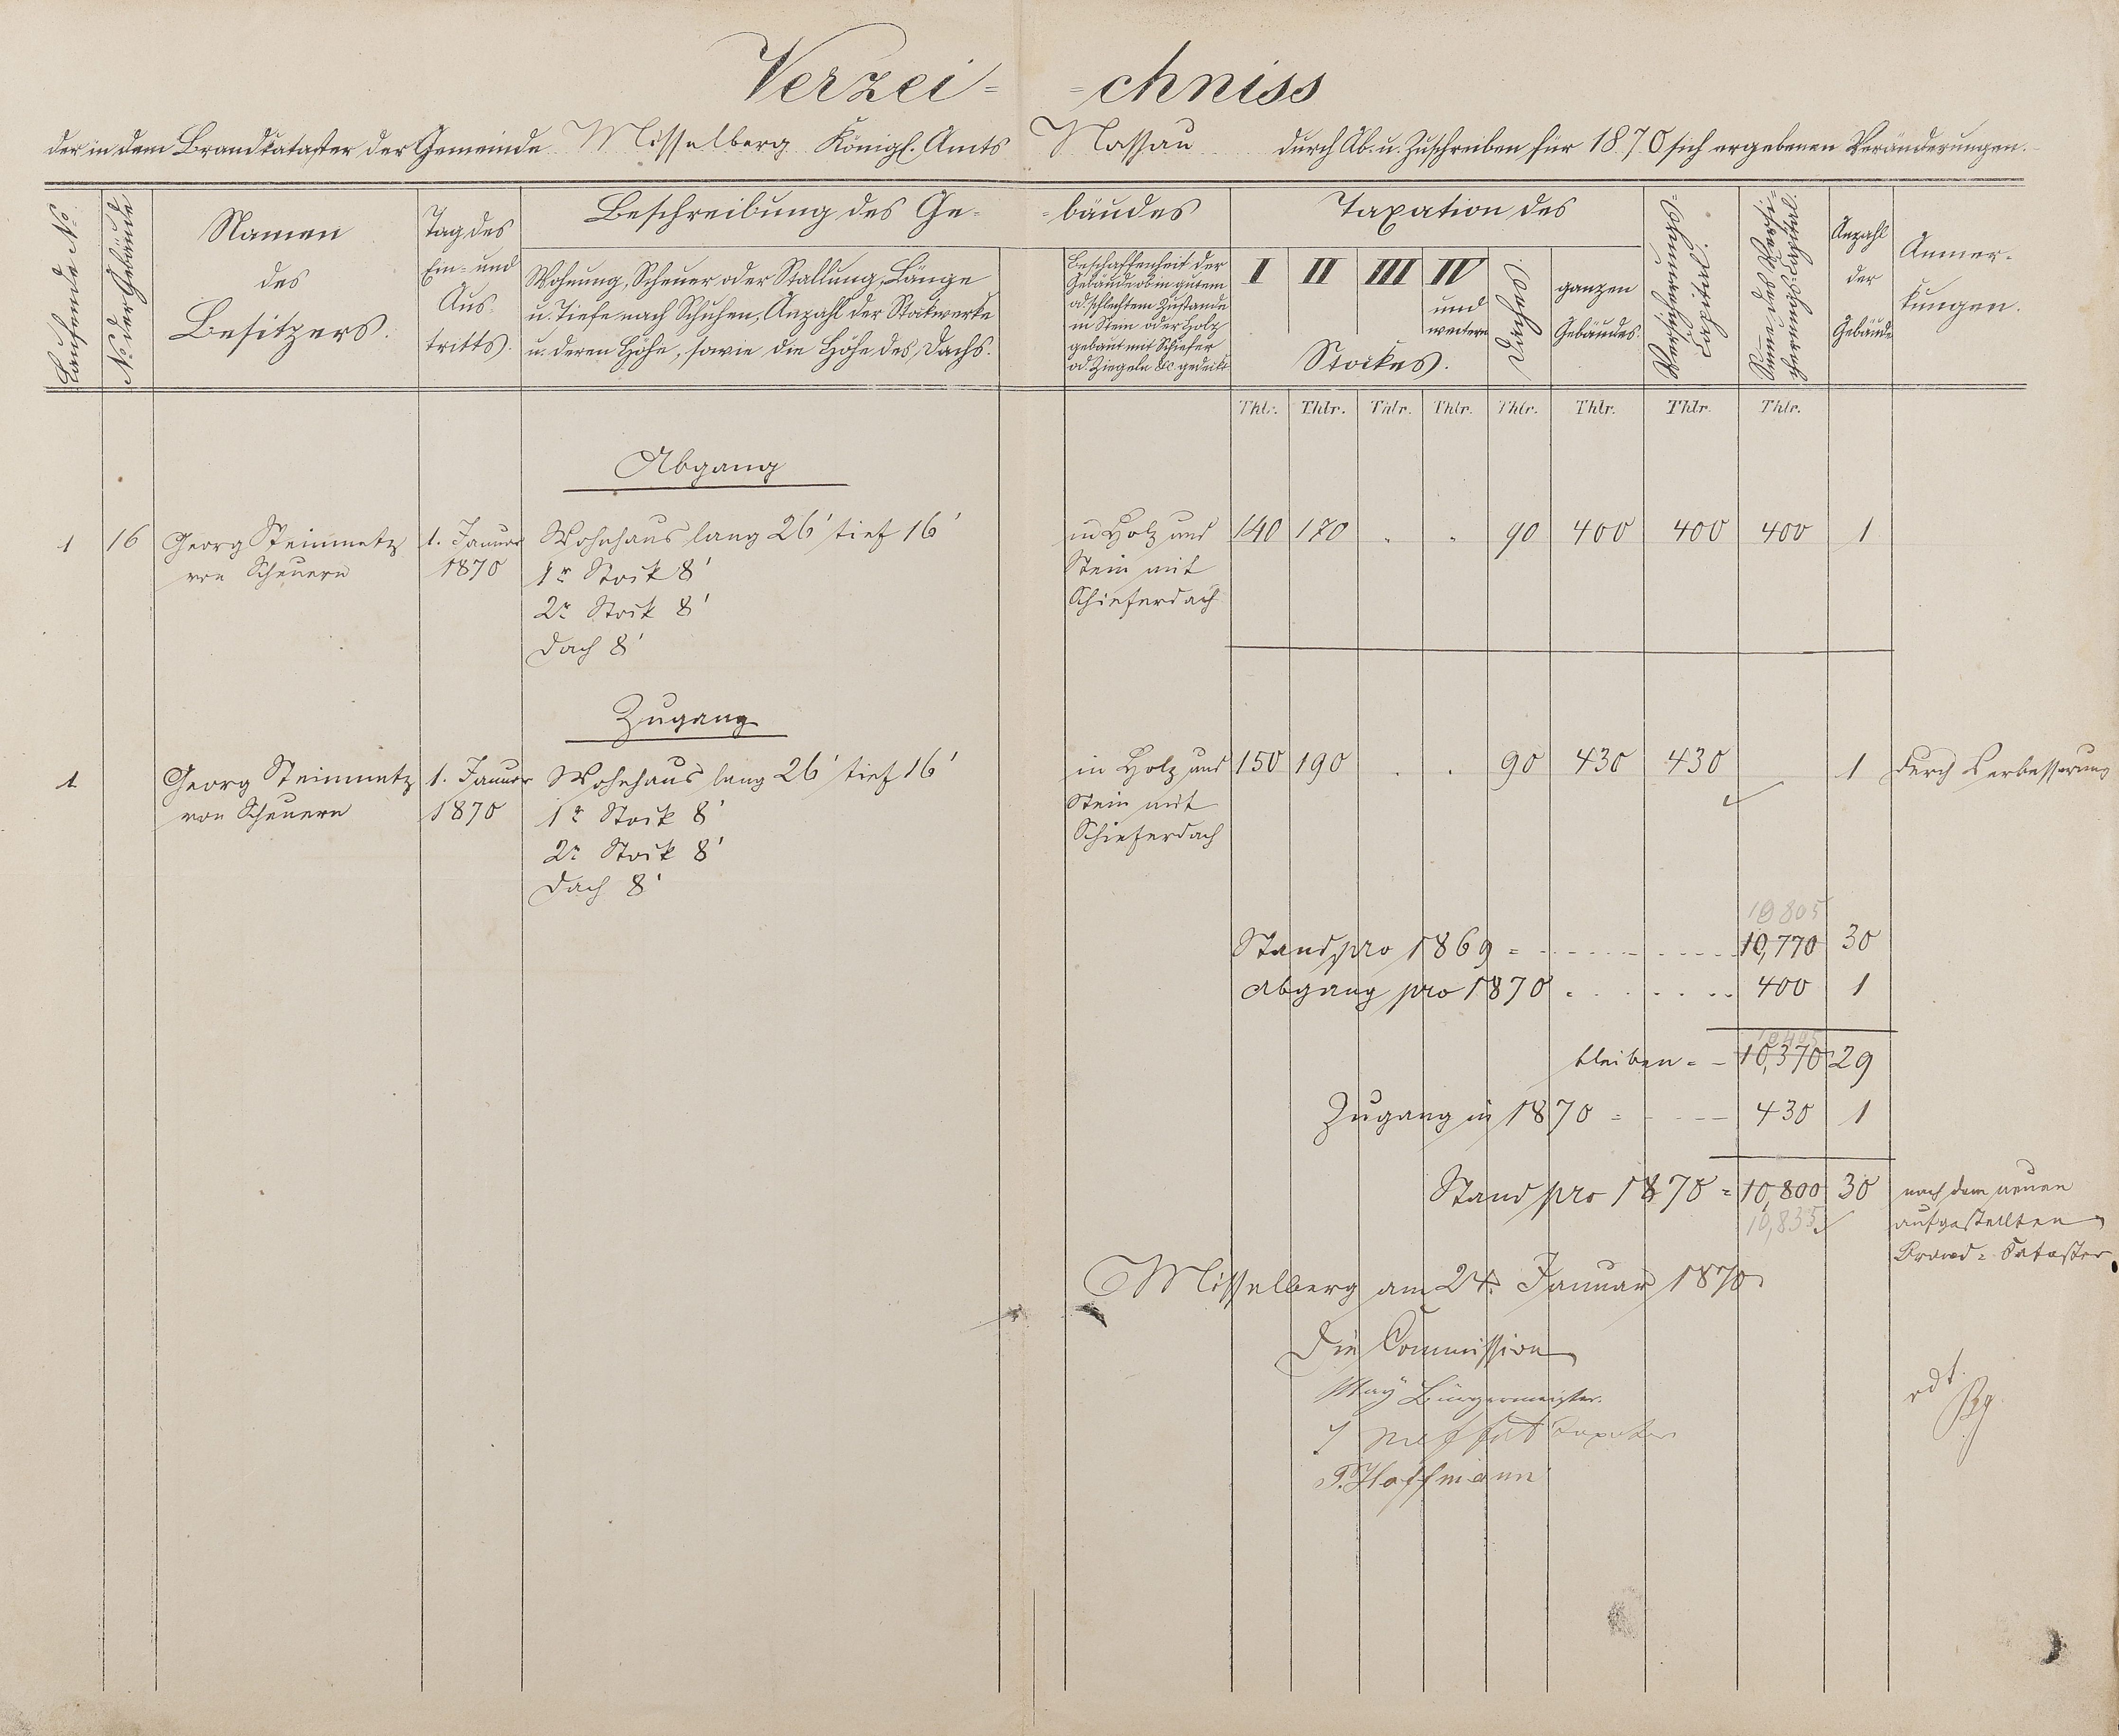 Verzei= =chniss
der in dem Brandkataster der Gemeinde Misselberg Königl. Amts Nassau durch Ab- u. Zuschreiben für 1870 sich ergebenen Veränderungen.
Laufende No.
No. der Gebäude
Namen
des
Besitzers.
Tag des
Ein- und
Aus-
tritts.
Beschreibung des Ge- =bäudes
Wohnung, Scheuer oder Stallung, Länge
u. Tiefe nach Schuhen, Anzahl der Stockwerke
u. deren Höhe, sowie die Höhe des Dachs.
Beschaffenheit der
Gebäude ob in gutem
od. schlechtem Zustande
in Stein oder Holz
gebaut mit Schiefer
od. Ziegeln &c. gedeckt
Taxation des
I II III IV
und
weitern
Stockes.
Daches.
ganzen
Gebäudes.
Versicherungs-
Capital.
Summe des Versi-
cherungs-Capital.
Anzahl
der
Gebäude
Anmer-
kungen.
Thlr. Thlr. Thlr. Thlr. Thlr. Thlr. Thlr. Thlr.
Abgang
1 16 Georg Steinmetz 1. Januar Wohnhaus lang 26' tief 16' in Holz und 140 170 . . 90 400 400 400 1
von Scheuern 1870 1r Stock 8' Stein mit
2r Stock 8' Schieferdach
Dach 8'
Zugang
1 Georg Steinmetz 1. Januar Wohnhaus lang 26' tief 16' in Holz und 150 190 . . 90 430 430 1 durch Verbesserung
von Scheuern 1870 1r Stock 8' Stein mit
2r Stock 8' Schieferdach
Dach 8'
10805
Stand pro 1869 = 10,770 30
Abgang pro 1870 400 1
10405
bleiben = 10,370 29
Zugang in 1870 = 430 1
Stand pro 1870 = 10,800 30 nach dem neuen
10,835 aufgestellten
Brand=Cataster
Misselberg am 24. Januar 1870
Die Commission
May Bürgermeister.
Taxator
P. Hoffmann